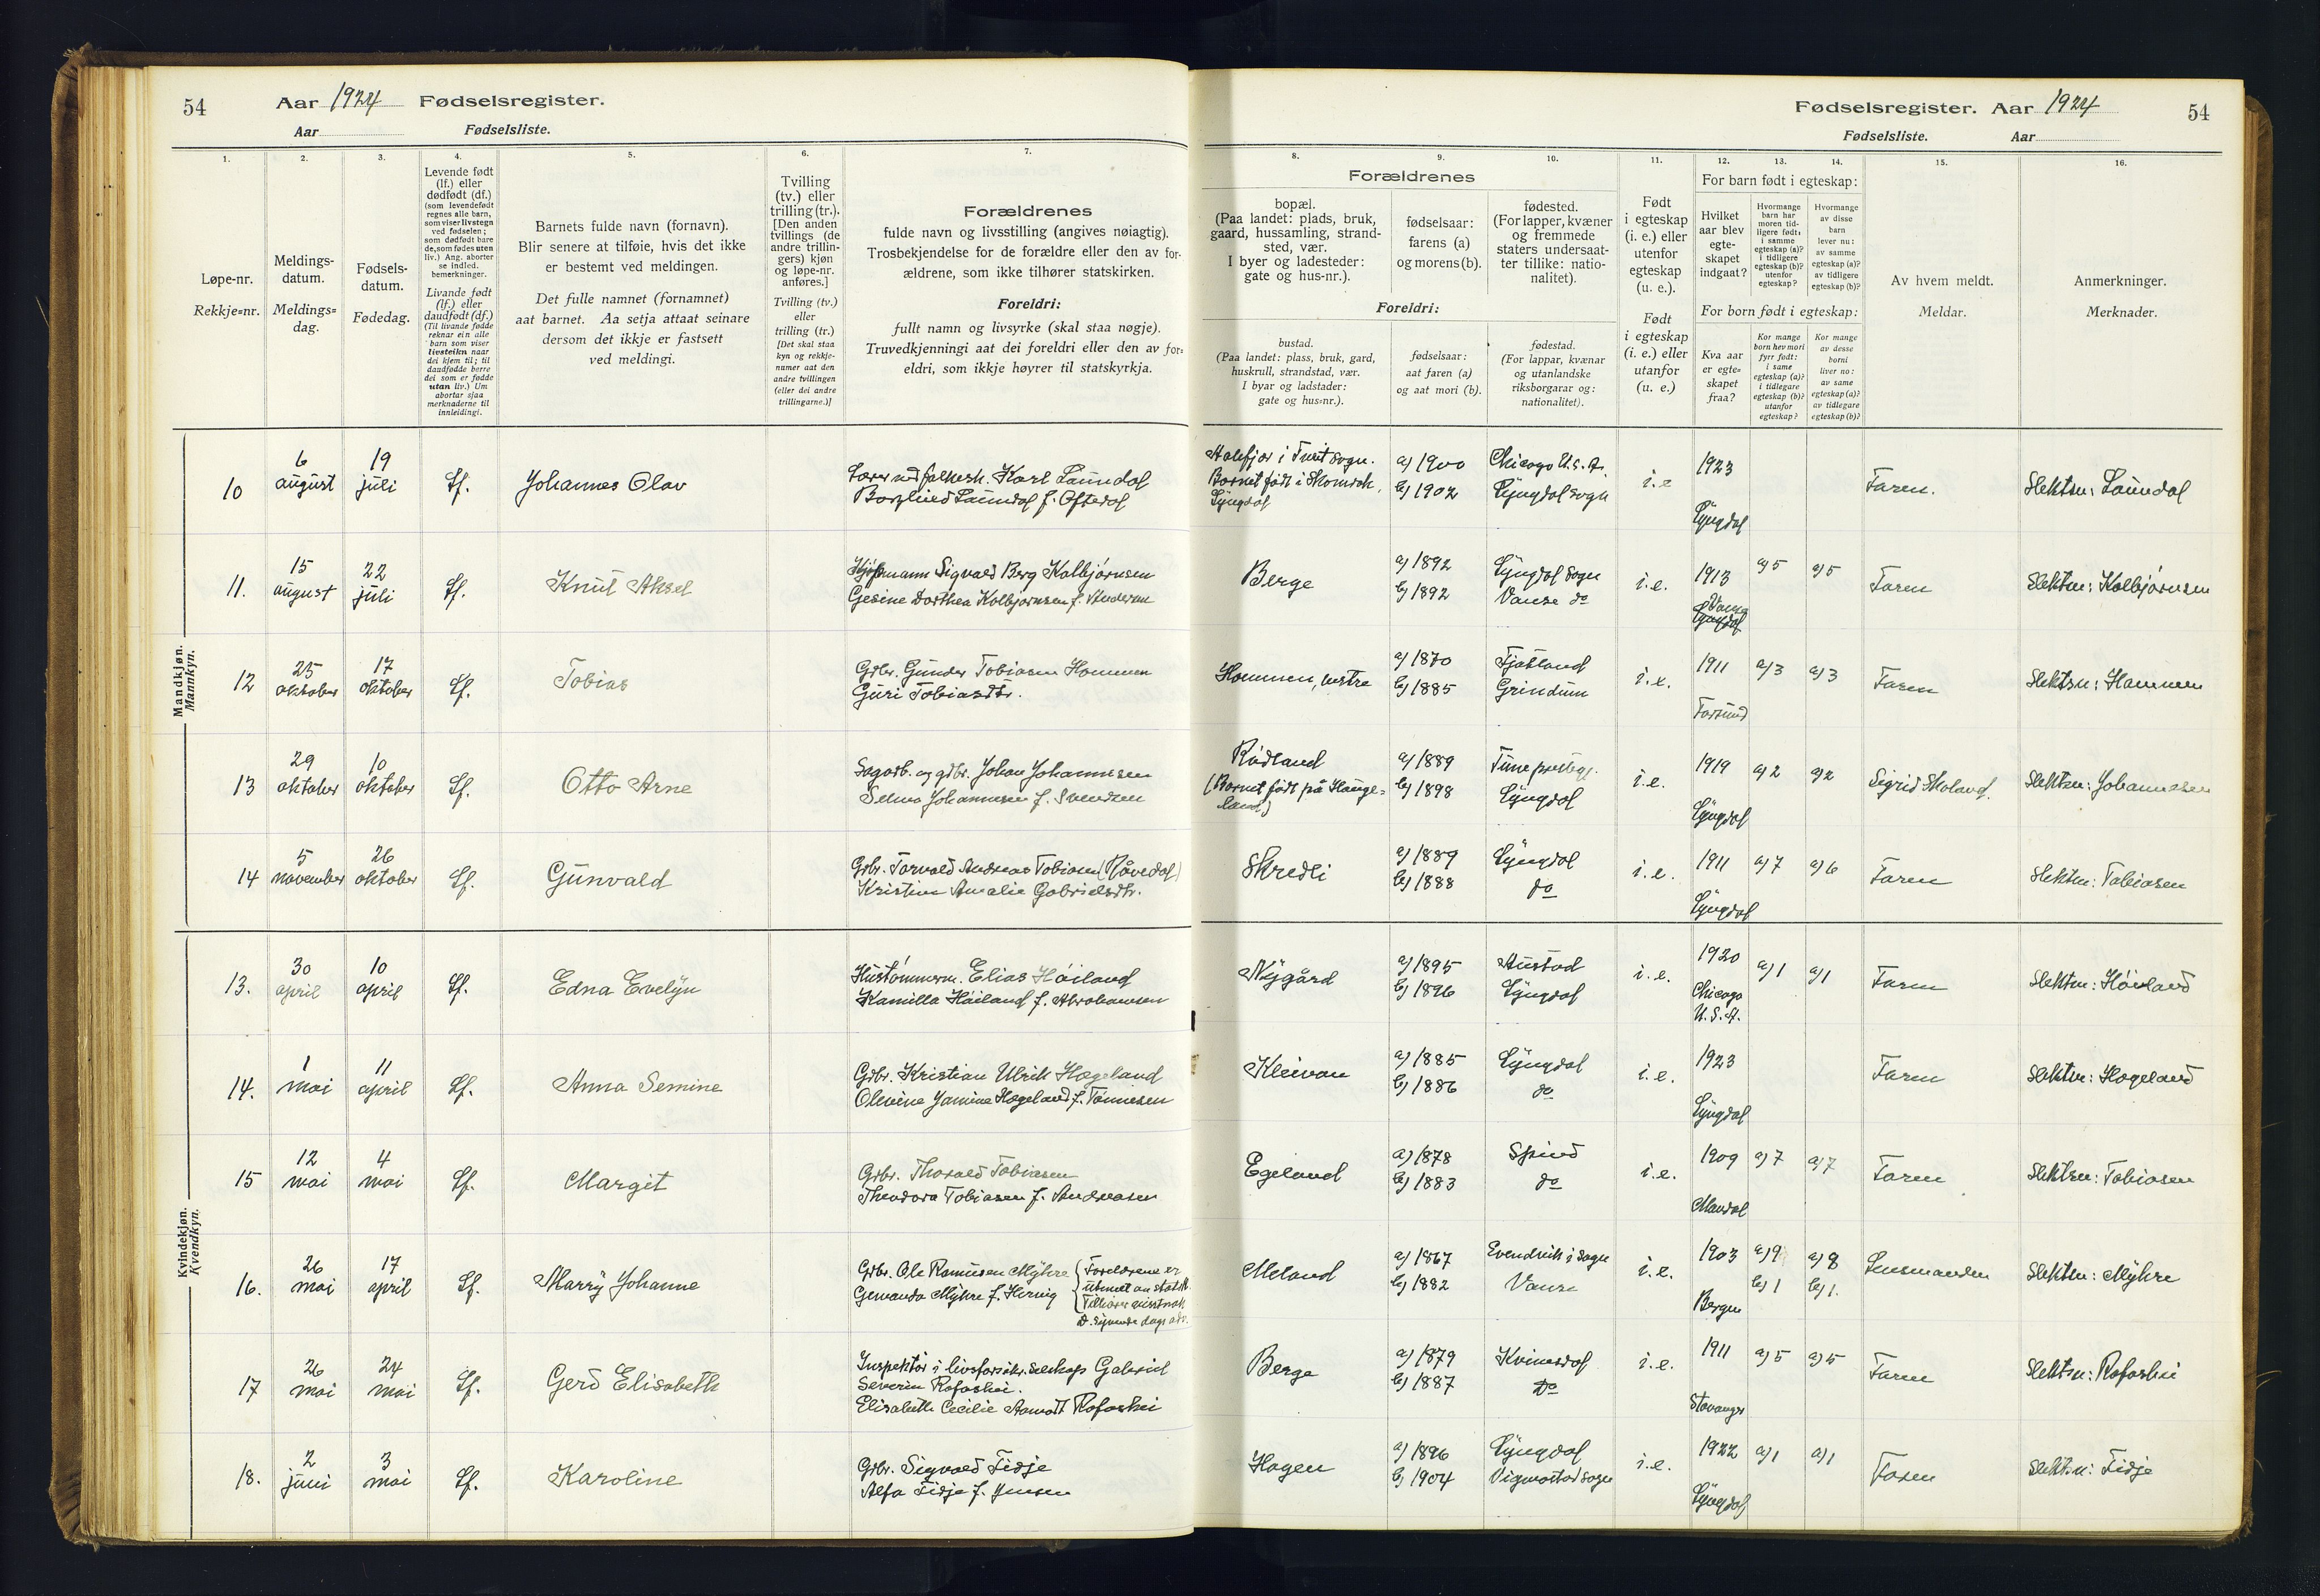 54 Aar 1924 Fødselsregister.
Aar Fødselsliste.
Fødselsregister. Aar 1924 54
Fødselsliste. Aar
1.
2.
3.
4.
5.
6.
7.
Løpe-nr.
Rekkje=nr.
Meldings-
datum.
Meldings=
dag.
Fødsels-
datum.
Fødedag.
Levende født
(lf.) eller
dødfødt (df.)
(som levendefødt
regnes alle barn,
som viser livstegn
ved fødselen;
som dødfødt bare
de, som fødes uten
liv.) Ang. aborter
se indled.
bemerkninger.
Livande født
(lf.) eller
daudfødt (df.)
(Til livande fødde
reknar ein alle
barn som viser
livsteikn naar
dei kjem til; til
daudfødde berre
dei som er fødde
utan liv.) Um
abortar sjaa
merknaderne til
innleidingi.
Barnets fulde navn (fornavn).
Blir senere at tilføie, hvis det ikke
er bestemt ved meldingen.
Det fulle namnet (fornamnet)
aat barnet. Aa setja attaat seinare
dersom det ikkje er fastsett
ved meldingi.
Tvilling
(tv.) eller
trilling (tr.).
[Den anden
tvillings (de
andre trillin-
gers) kjøn
og løpe-nr.
anføres.]
Tvilling (tv.)
eller
trilling (tr.)
[Det skal staa
kyn og rekkje-
numer aat den
andre tvillingen
(eller dei andre
trillingarne.)]
Forældrenes
fulde navn og livsstilling (angives nøiagtig).
Trosbekjendelse for de forældre eller den av for-
ældrene, som ikke tilhører statskirken.
Foreldri:
fullt namn og livsyrke (skal staa nøgje).
Truvedkjenningi aat dei foreldri eller den av for=
eldri, som ikkje høyrer til statskyrkja.
8.
9.
10.
11.
12.
13.
14.
15.
16.
Forældrenes
bopæl.
(Paa landet: plads, bruk,
gaard, hussamling, strand-
sted, vær.
I byer og ladesteder:
gate og hus-nr.).
fødselsaar:
farens (a)
og morens (b).
fødested.
(For lapper, kvæner
og fremmede
staters undersaat-
ter tillike: natio-
nalitet).
Foreldri:
bustad.
(Paa landet: plass, bruk, gard,
huskrull, strandstad, vær.
I byar og ladstader:
gate og hus=nr.).
fødselsaar:
aat faren (a)
og aat mori (b).
fødestad.
(For lappar, kvænar
og utanlandske
riksborgarar og:
nationalitet).
Født
i egteskap
(i. e.) eller
utenfor
egteskap
(u. e.).
Født
i egteskap
(i. e.) eller
utanfor
(u. e.)
For barn født i egteskap:
Hvilket
aar blev
egte-
skapet
indgaat?
Hvormange
barn har
moren tid-
ligere født:
i samme
egteskap (a)?
i tidligere
egteskap (b)?
utenfor
egteskap?
Hvormange
av disse
barn
lever nu:
av samme
egteskap (a)?
av tidligere
egteskap (b)?
For born født i egteskap:
Kva aar
er egte=
skapet
fraa?
Kor mange
born hev mori
fyrr født:
i same
egteskap (a)?
i tidlegare
egteskap (b)?
utanfor
egteskap?
Kor mange
av desse
borni
liver no:
av same
egteskap (a)?
av tidlegare
egteskap (b)?
Av hvem meldt.
Meldar.
Anmerkninger.
Merknader.
Mandkjøn.
Mannkyn.
10 6 august 19 juli Lf. Johannes Olav
Karl Laundal
Laundal f. Oftedal
Barnet født i
Lyngdal
a) 1900
b) 1902
Chicago U.S.A.
Lyngdal sogn
i.e
1923
Lyngdal
Faren.
Slektsn: Laundal
11. 15 august 22 juli Lf. Knut Aksel
Sigvald Berg Kolbjørnsen
Gesine Dorthea Kolbjørnsen f.
Berge
a) 1892
b) 1892
Lyngdal sogn
Vanse do
i.e.
1913
a) 5
a) 5
Faren
Slektsn: Kolbjørnsen
12 25 oktober 17 oktober Lf. Tobias
Grbr. Gunder Tobiasen Hommen
Guri Tobiasdtr.
Hommen, vestre
a) 1870
b) 1885
Fjotland
Grindum
i.e.
1911
Farsund
a) 3
a) 3
Faren
Slektsn: Hommen
13 29 oktober 10 oktober Lf. Otto Arne
Sagarb. og gdbr. Johan Johannesen
Selma Johannesen f. Svendsen
Rødland
(Barnet født på Hauge=
land)
a) 1889
b) 1898
Lyngdal
i.e.
1919
Lyngdal
a) 2
a) 2
Sigrid Skoland.
Slektsn: Johannesen
14 5 november 26 oktober Lf. Gunvald
Grbr. Torvald Andreas Tobiasen (Råvedal)
Kristine Amalie Gabrielsdtr.
Skredli
a) 1889
b) 1888
Lyngdal
do
i.e.
1911
Lyngdal
a) 7
a) 6
Faren
Slektsn: Tobiasen
Kvindekjøn.
Kvendkyn.
13. 30 april 10 april Lf. Edna Evelyn
Hustømmerm. Elias Høiland
Kamilla Høiland f. Abrahamsen
Nygård
a) 1895
b) 1896
Austad
Lyngdal
i.e.
1920
Chicago
U.S.A.
a) 1
a) 1
Faren
Slektsn: Høiland
14. 1 mai 11 april Lf. Anna Semine
Grbr. Kristian Ulrik Hægeland
Olevine Jamine Hægeland f. Tønnesen
Kleivan
a) 1885
b) 1886
Lyngdal
do
i.e.
1923
Lyngdal
Faren
Slektsn: Hægeland
15 12 mai 4 mai Lf. Margit
Grbr. Thorald Tobiasen
Theodora Tobiasen f. Andreasen
Egeland
a) 1878
b) 1883
Spind
do
i.e.
1909
Mandal
a) 7
a) 7
Faren
Slektsn: Tobiasen
16. 26 mai 17 april Lf. Marry Johanne
Grbr. Ole Rasmusen Myhre
Myhre f.
Forældrene er
utmeldt av statsk.
Meland
a) 1867
b) 1882
Evendvik i Sogn
Vanse
i.e.
1903
Bergen
a) 9
b) 1
a) 8
b) 1.
Lensmanden
Slektsn: Myhre
17 26 mai 24 mai Lf. Gerd Elisabeth
Inspektør i livsforsikr. selskap Gabriel
Severin Rafoshei.
Elisabeth Cecilie Aamodt Rafoshei
Berge
a) 1879
b) 1887
Kvinesdal
do
i.e.
1911
Stavanger
a) 5
a) 5
Faren
Slektsn: Rafoshei
18. 2 juni 3 mai Lf. Karoline
Grbr. Sigvald Tidje
Alfa Tidje f. Jensen
Hagen
a) 1896
b) 1904
Lyngdal
Vigmostad sogn
i.e.
1922
Lyngdal
a) 1
a) 1
Faren
Slektsn: Tidje